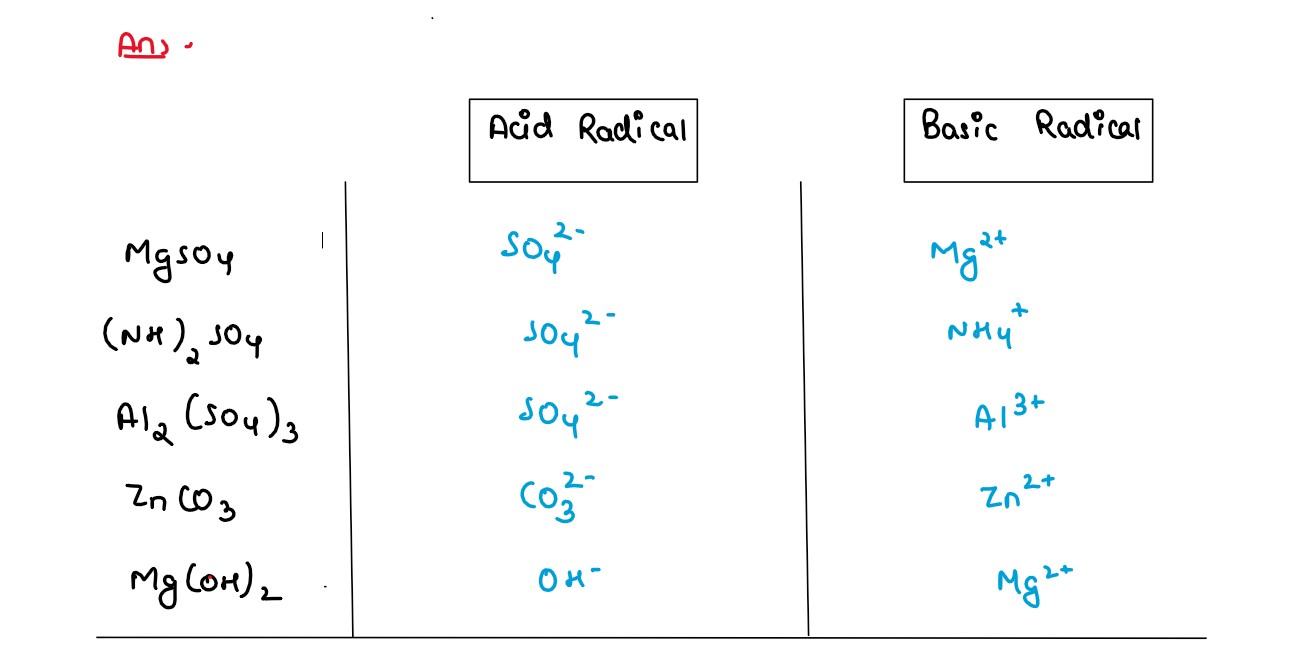 Ans .
Acid Radical Basic Radical
MgSO4 SO4²⁻ Mg²⁺
(NH)₂ SO4 SO4²⁻ NH4⁺
Al₂ (SO4)₃ SO4²⁻ Al³⁺
ZnCO₃ CO₃²⁻ Zn²⁺
Mg(OH)₂ OH⁻ Mg²⁺